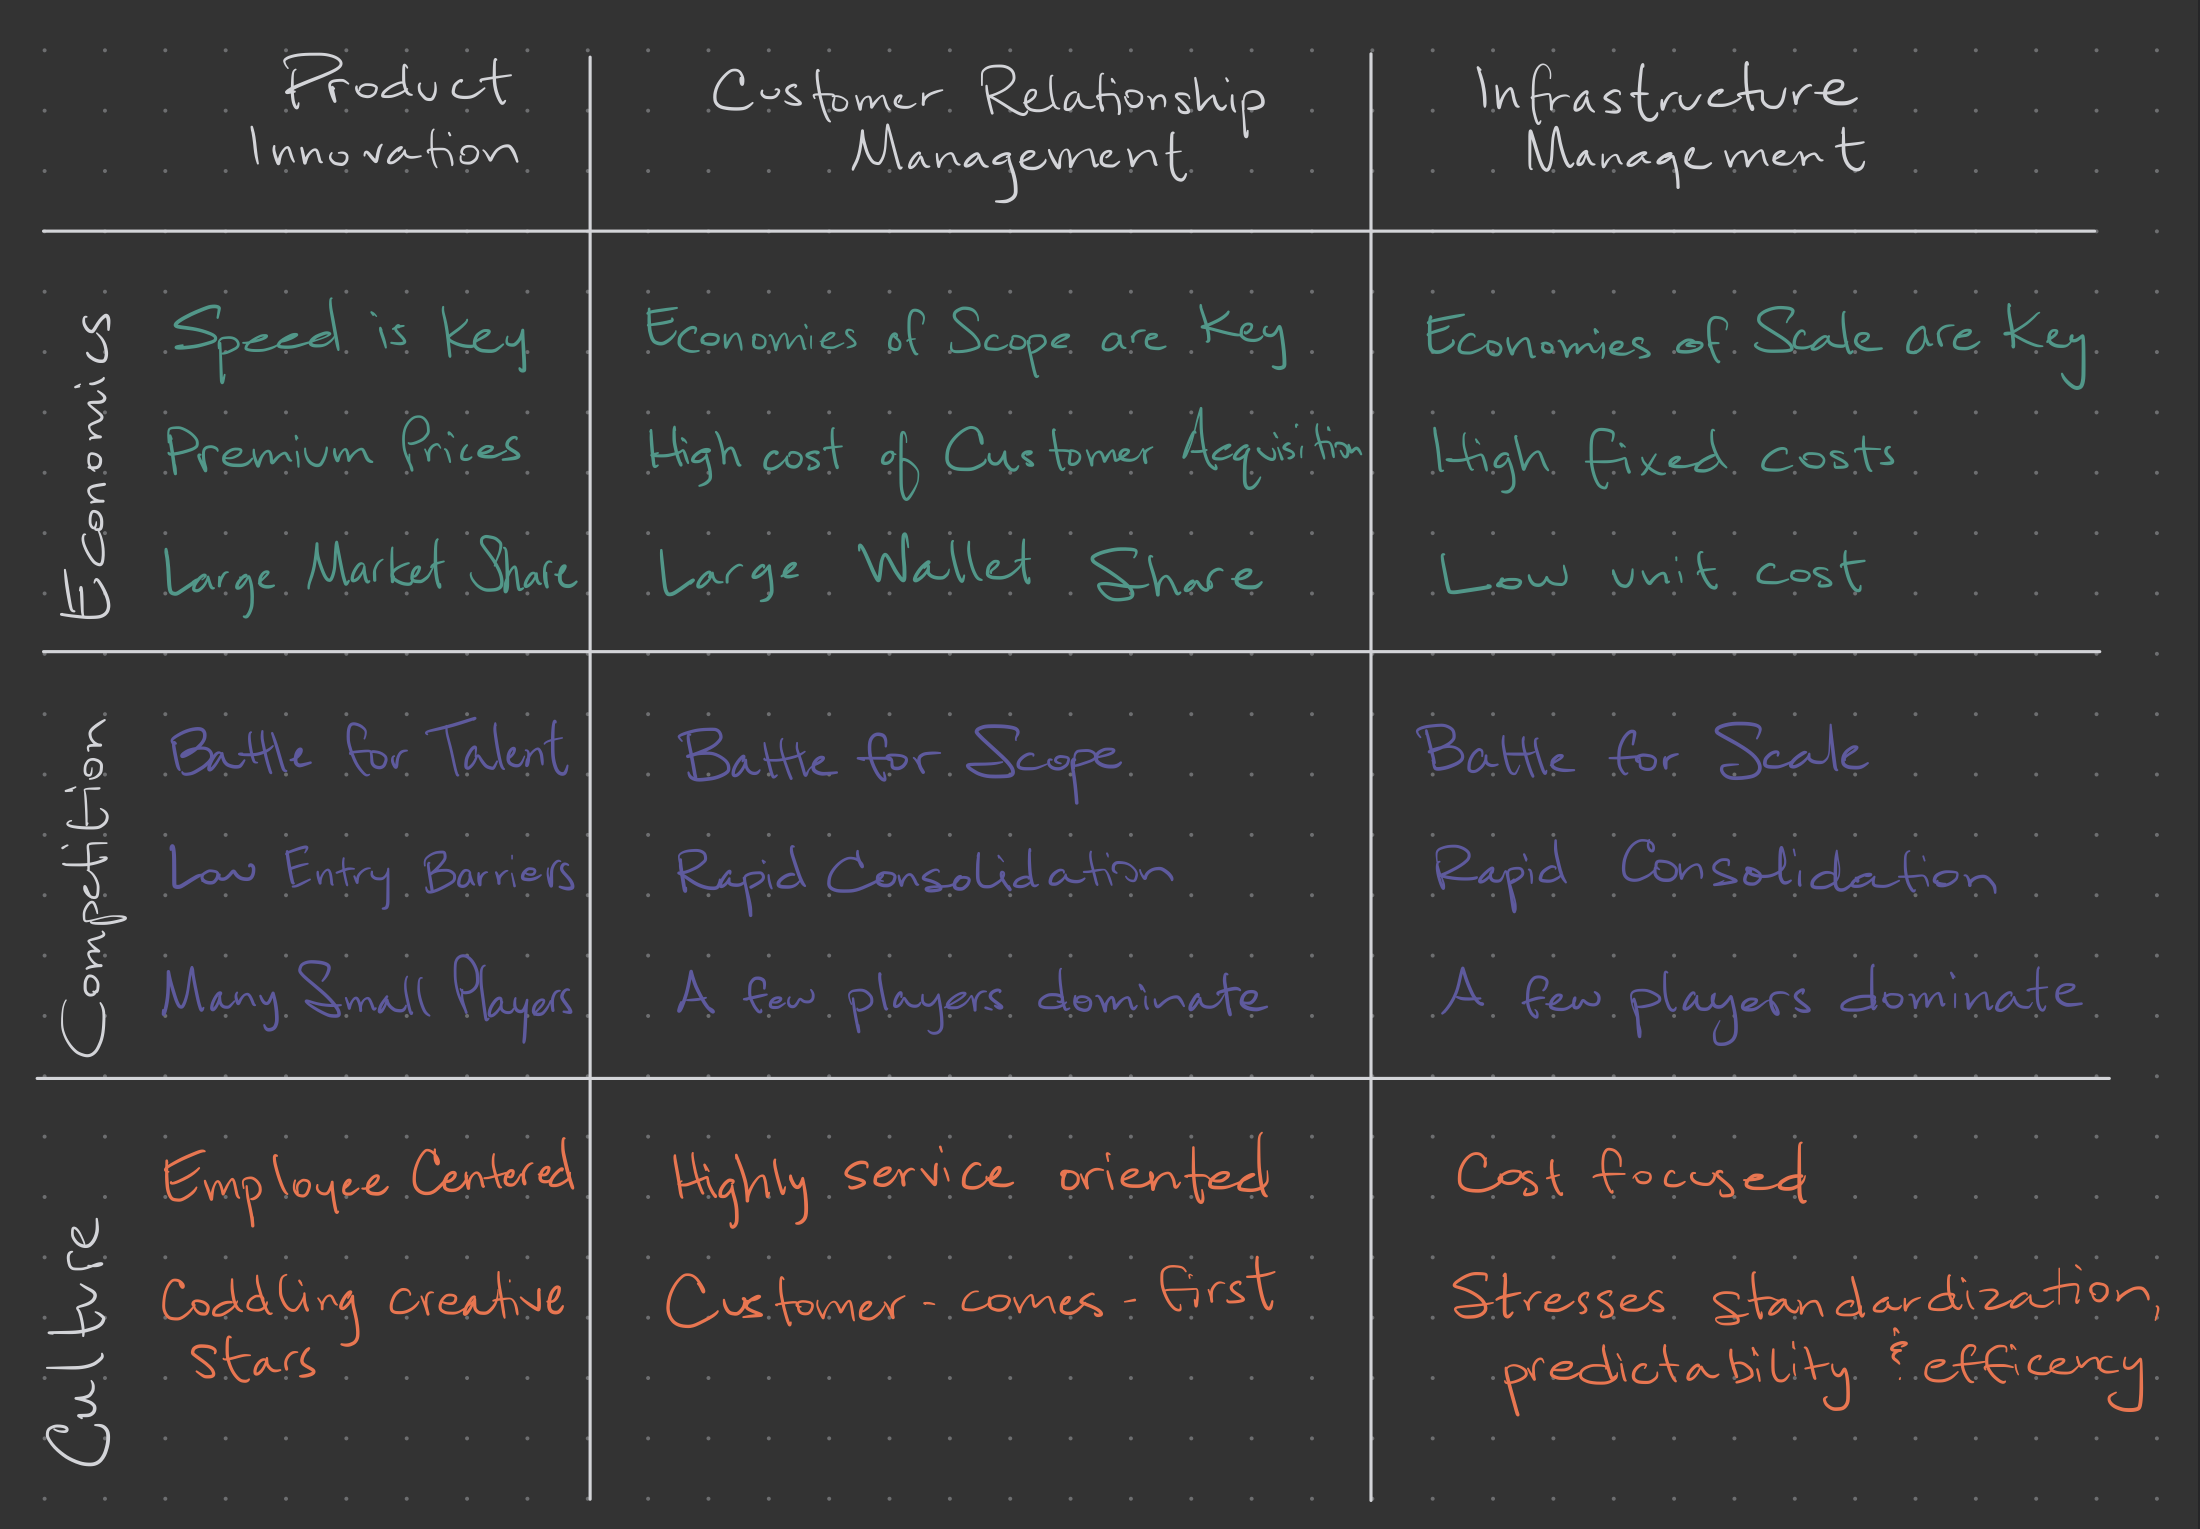 Product
Innovation
Customer Relationship
Management
Infrastructure
Management
Economics
Speed is key
Premium Prices
Large Market Share
Economies of Scope are Key
High cost of Customer Acquisition
Large Wallet Share
Economies of Scale are Key
High fixed costs
Low unit cost
Competition
Battle for Talent
Low Entry Barriers
Many Small Players
Battle for Scope
Rapid Consolidation
A few players dominate
Battle for Scale
Rapid Consolidation
A few players dominate
Culture
Employee Centered
Coddling creative
stars
Highly service oriented
Customer-comes-first
Cost focused
Stresses standardization,
predictability & efficency